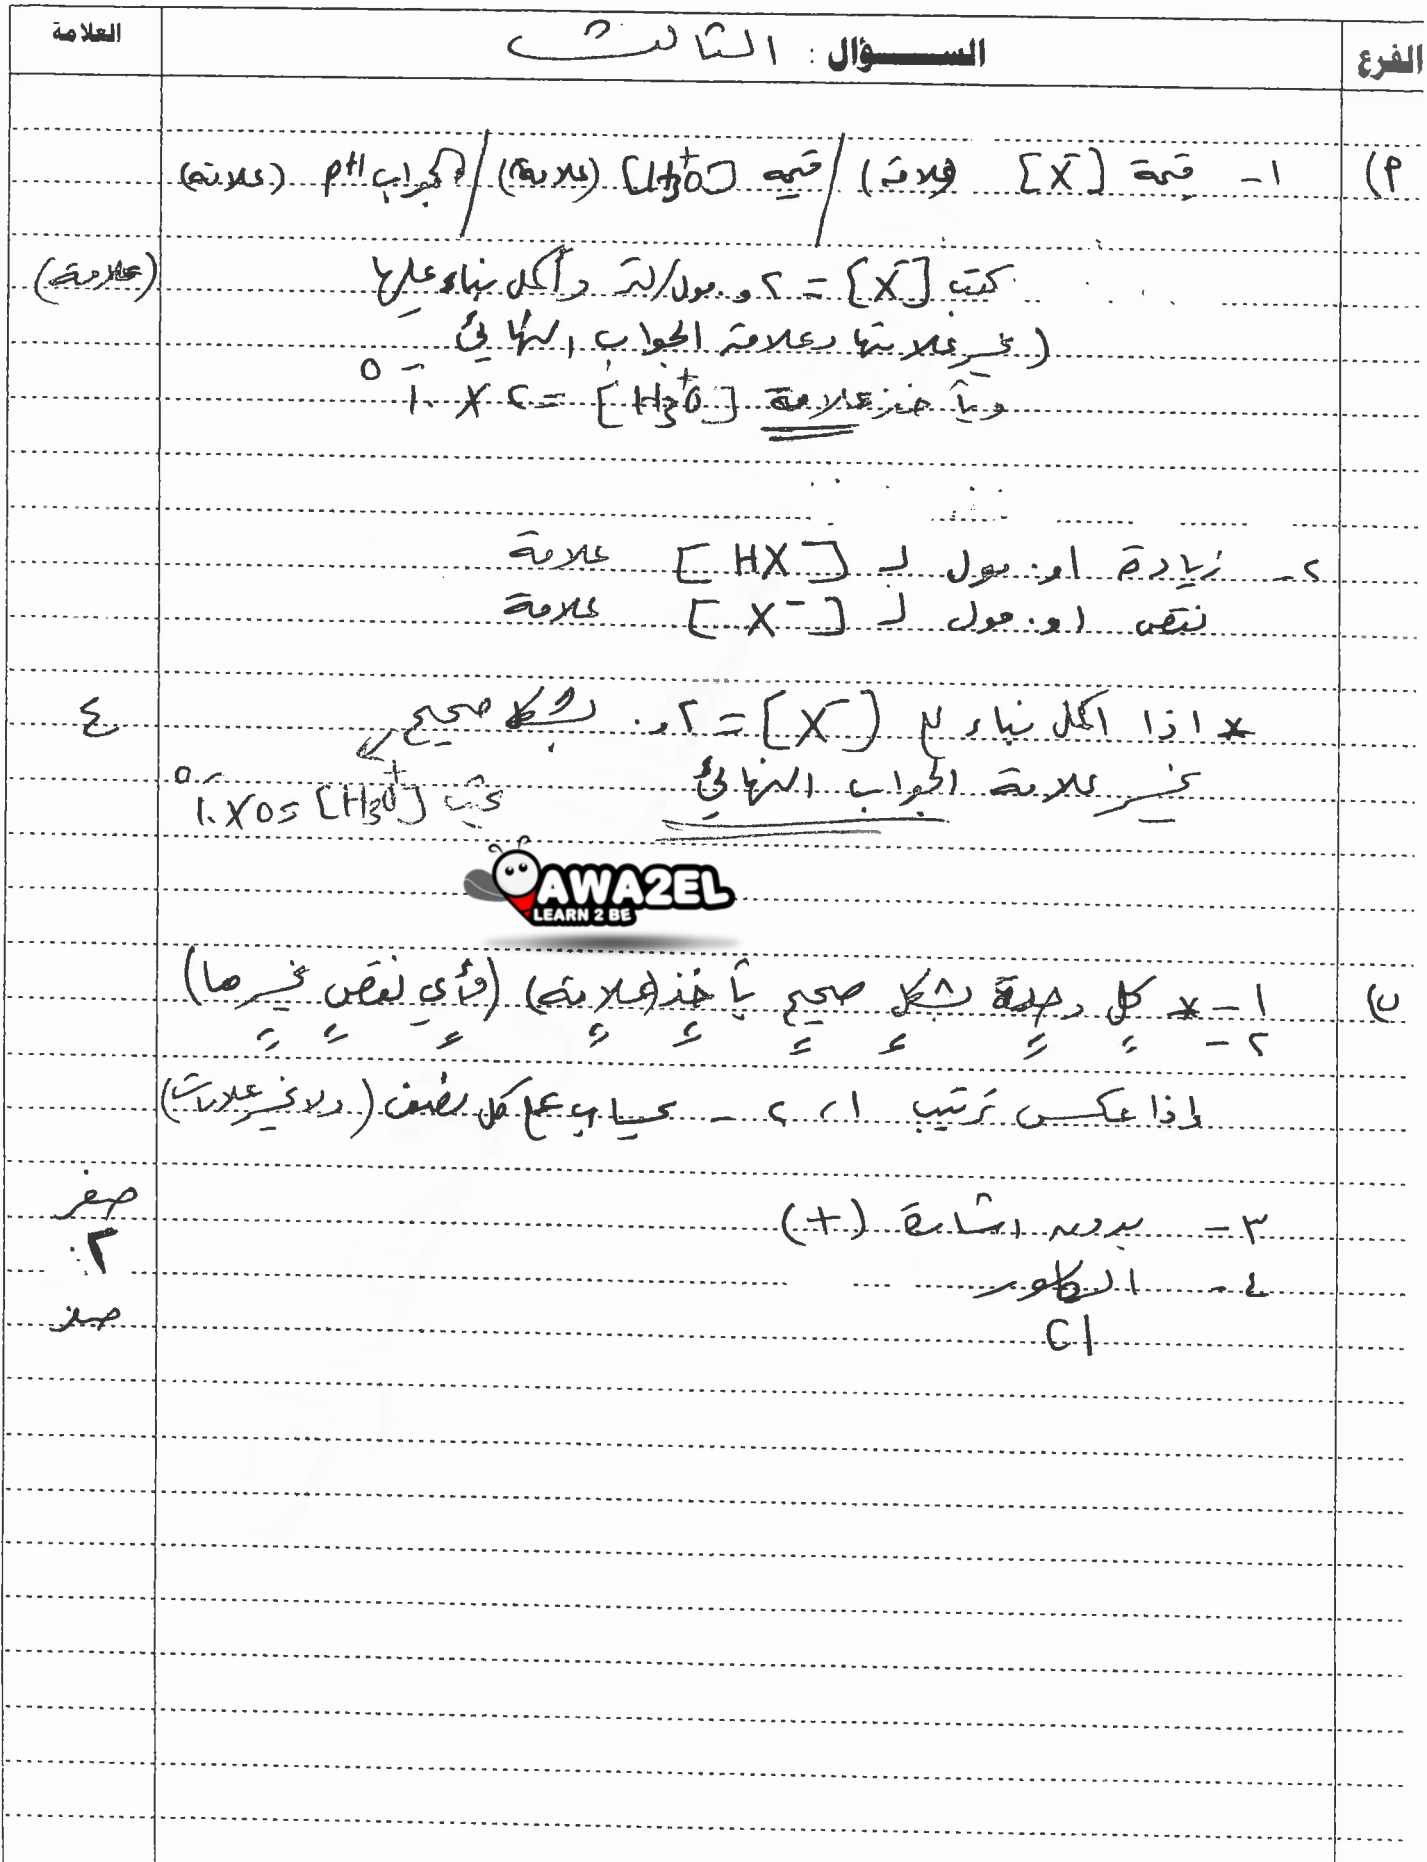 الفرع السؤال : الثالث العلامة
أ) ١- قيمة [X⁻] (علامة) / قيمة [H₃O⁺] (علامة) / الجواب pH (علامة)
كتب [X⁻] = ٢و. مول/لتر وأكمل بناء عليها (علامة)
(يخسر علامتها وعلامة الجواب النهائي
ويأخذ علامة [H₃O⁺] = ٢ × ١٠⁻⁵
٢- زيادة ١و. مول لـ [HX] علامة
نقص ١و. مول لـ [X⁻] علامة
* اذا اكمل بناء [X⁻] = ٢و. بشكل صحيح ٤
يخسر علامة الجواب النهائي
[H₃O⁺] = ٥ × ١٠⁻⁵
AWA2EL
LEARN 2 BE
ب) ١- * كل وحدة بشكل صحيح تأخذ (علامة) (وأي نقص يخسرها)
٢-
إذا عكس ترتيب ١، ٢ - يحاسب على كل نصف (ولا يخسر علامات)
٣- بدون اشارة (+) صفر
٢
٤- الكلور صفر
Cl